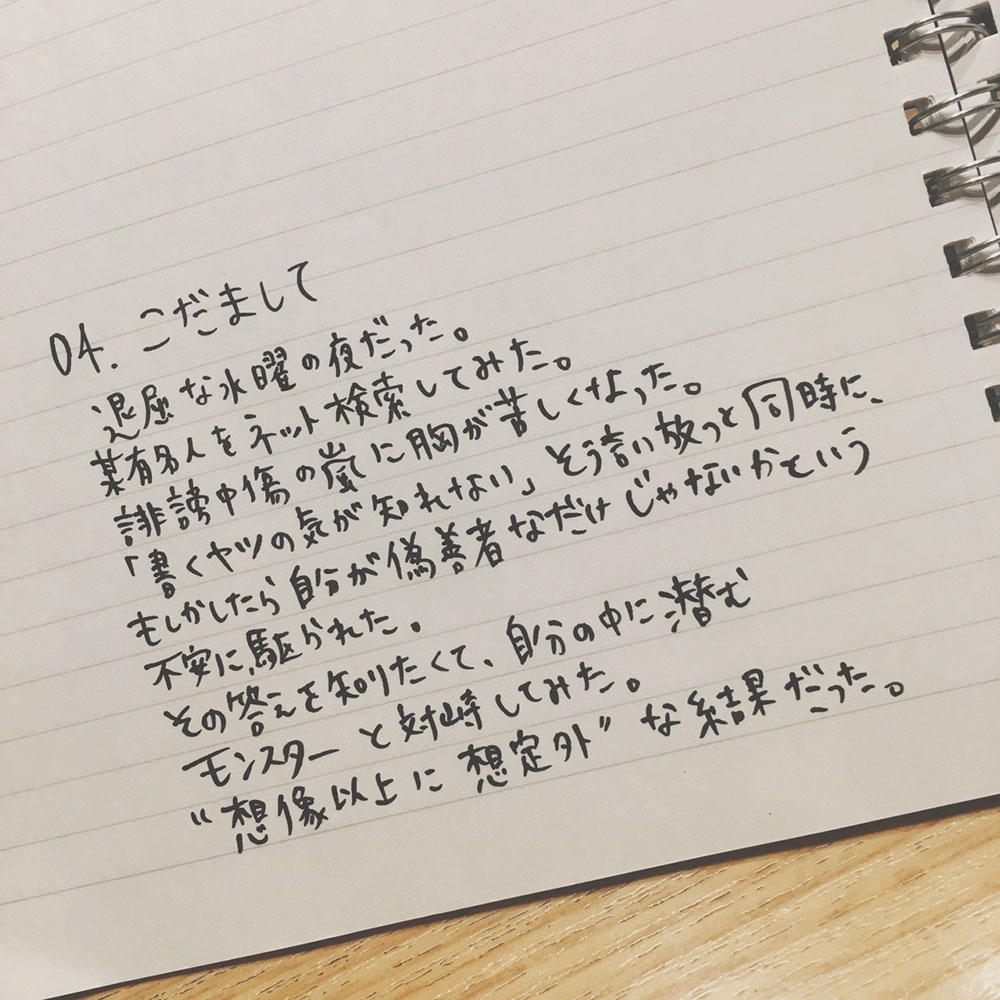 04. こだまして
退屈な水曜の夜だった。
某有名人をネット検索してみた。
誹謗中傷の嵐に胸が苦しくなった。
「書くヤツの気が知れない」そう言い放っと同時に、
もしかしたら自分が偽善者なだけじゃないかという
不安に駆られた。
その答えを知りたくて、自分の中に潜む
モンスターと対峙してみた。
“想像以上に想定外”な結果だった。